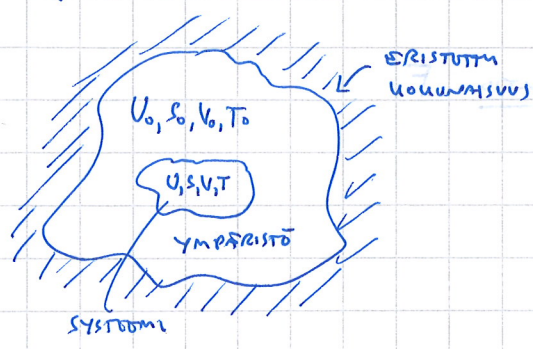 ERISTETTY
KOKONAISUUS
U₀, S₀, V₀, T₀
U,S,V,T
YMPÄRISTÖ
SYSTEEMI